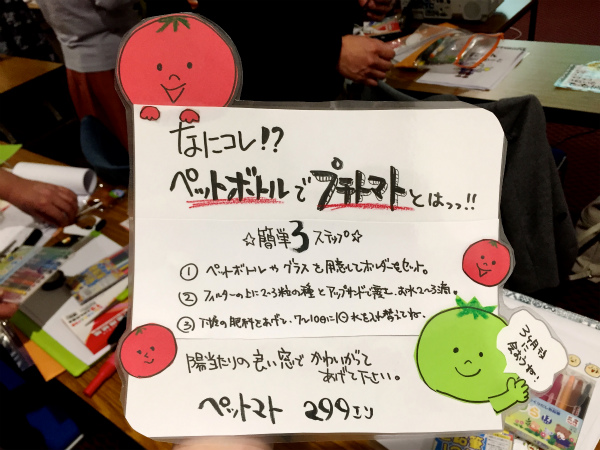 なにコレ!?
ペットボトルでプチトマトとはっっ!!
☆簡単3ステップ☆
① ペットボトルやグラスを用意してホルダーをセット。
② フィルターの上に2~3粒の種とアップサンドを育て、お水2~3滴。
③ 下段の肥料をあげて、7~10日に1回水を入れ替えてね。
陽当たりの良い窓でかわいがって
あげて下さい。
ペットマト 299エン
3ヶ月後に会おうね!